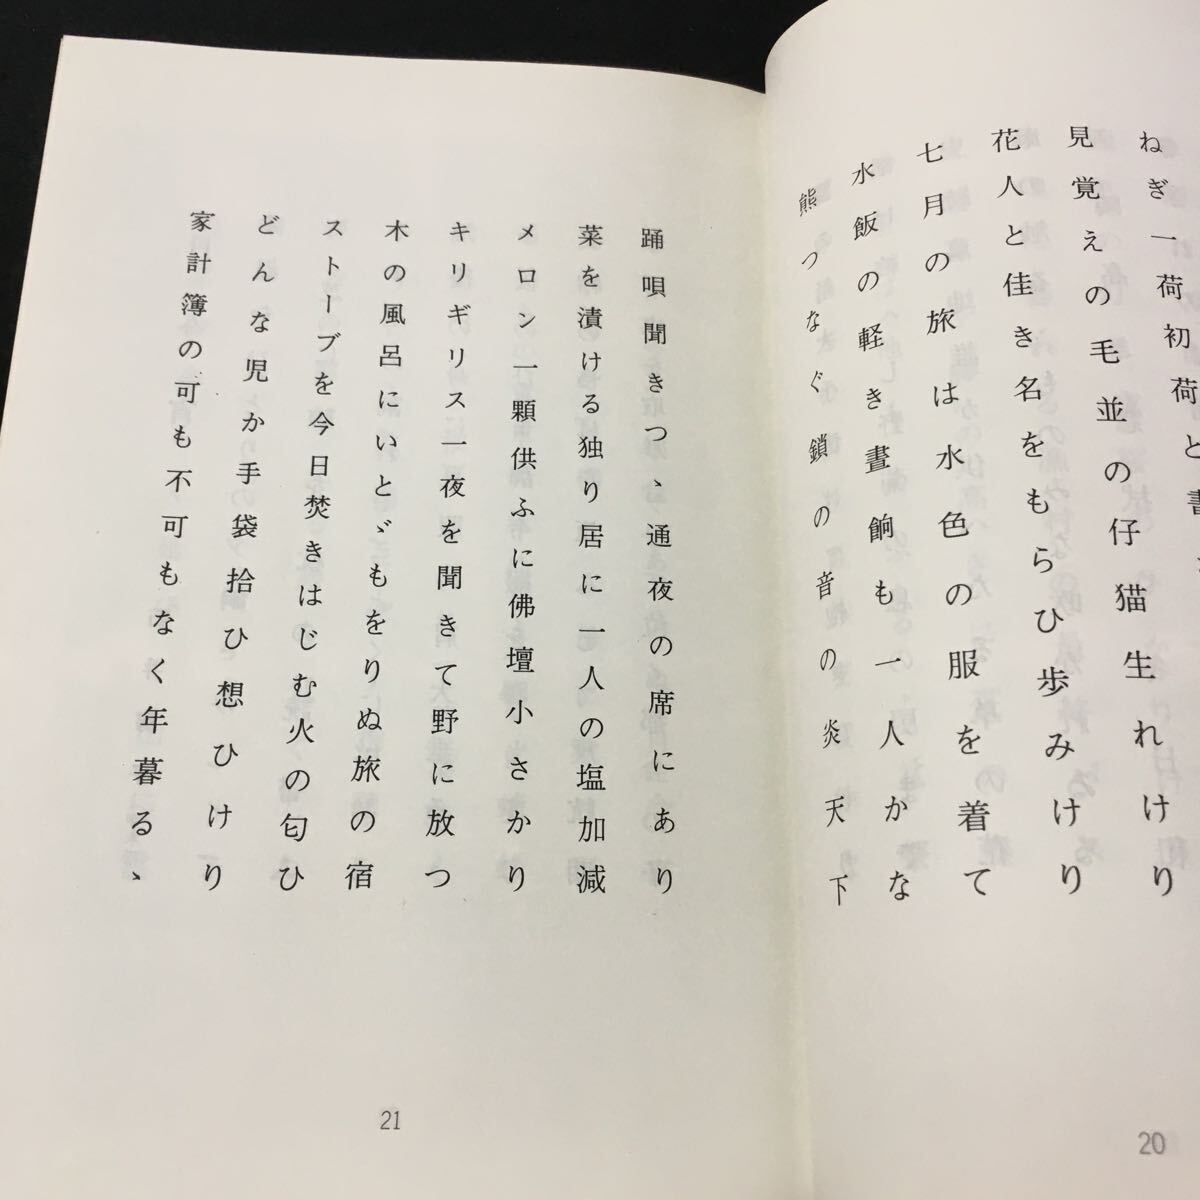 ねぎ一荷初荷と書
見覚えの毛並の仔猫生れけり
花人と佳き名をもらひ歩みけり
七月の旅は水色の服を着て
水飯の軽き晝餉も一人かな
熊つなぐ鎖の音の炎天下
20
踊唄聞きつゝ通夜の席にあり
菜を漬ける独り居に一人の塩加減
メロン一顆供ふに佛壇小さかり
キリギリス一夜を聞きて野に放つ
木の風呂にいとゞもをりぬ旅の宿
ストーブを今日焚きはじむ火の匂ひ
どんな児か手袋拾ひ想ひけり
家計簿の可も不可もなく年暮るゝ
21